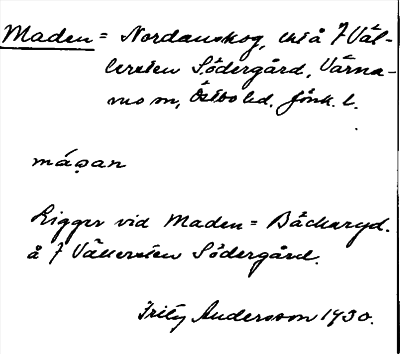 Maden = Nordanskog, på 7 Väl-
lersten Södergård, Värna-
mo sn, Östbo hd. Jönk. l.
mádan
Ligger vid Maden = Bäckaryd.
å 7 Vällersten Södergård.
Fritz Andersson 1930.